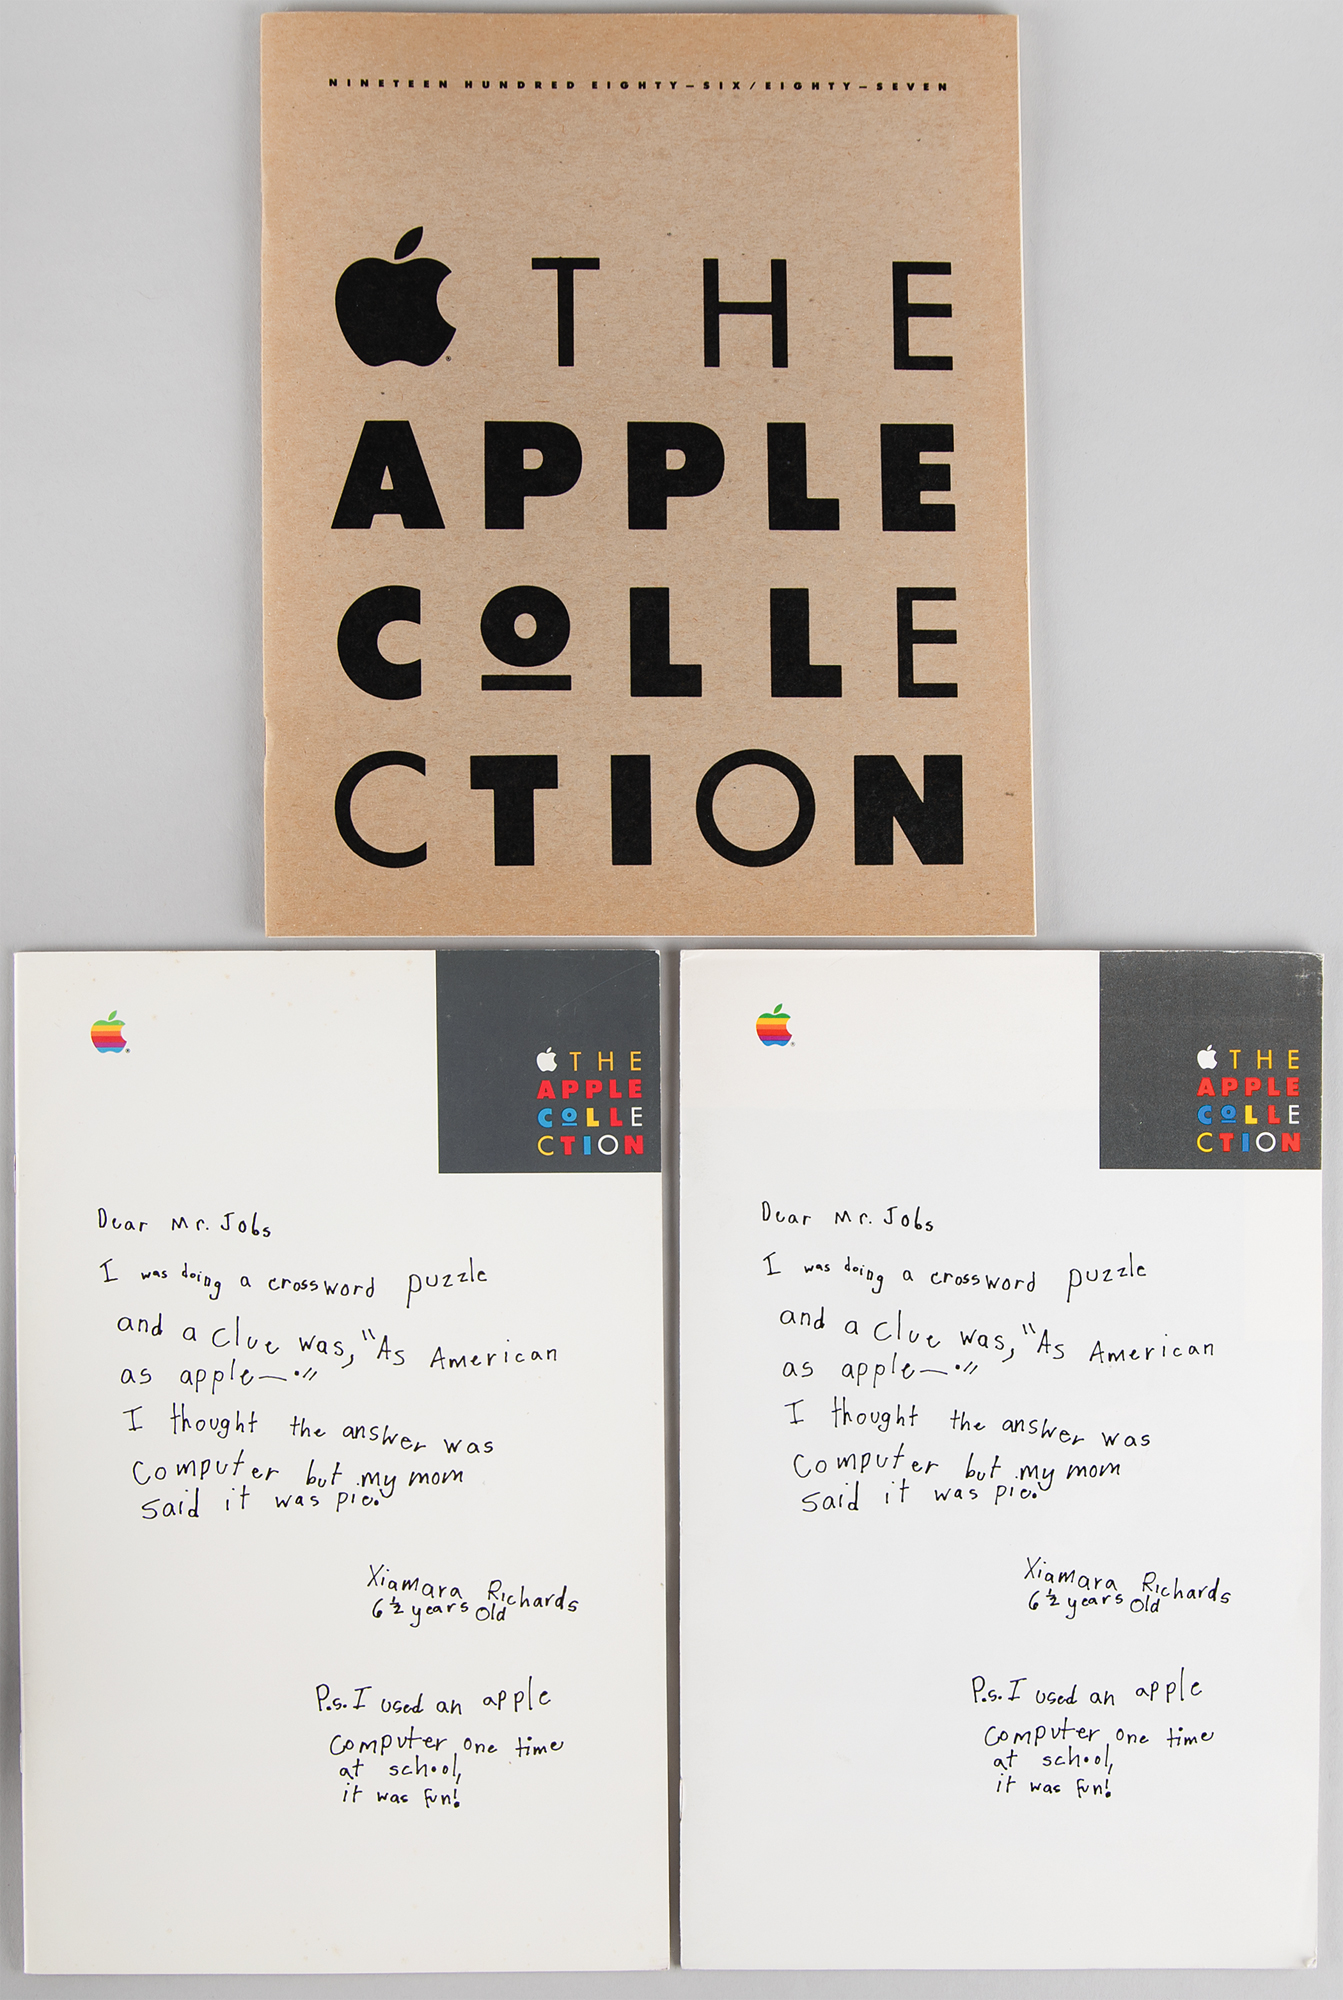 NINETEEN HUNDRED EIGHTY-SIX/EIGHTY-SEVEN
THE
APPLE
COLLE
CTION
THE
APPLE
COLLE
CTION
Dear Mr. Jobs
I was doing a crossword puzzle
and a clue was, "As American
as apple—."
I thought the answer was
computer but my mom
said it was pie.
Xiamara Richards
6 ½ years old
P.s. I used an apple
computer one time
at school,
it was fun!
THE
APPLE
COLLE
CTION
Dear Mr. Jobs
I was doing a crossword puzzle
and a clue was, "As American
as apple—."
I thought the answer was
computer but my mom
said it was pie.
Xiamara Richards
6 ½ years old
P.s. I used an apple
computer one time
at school,
it was fun!